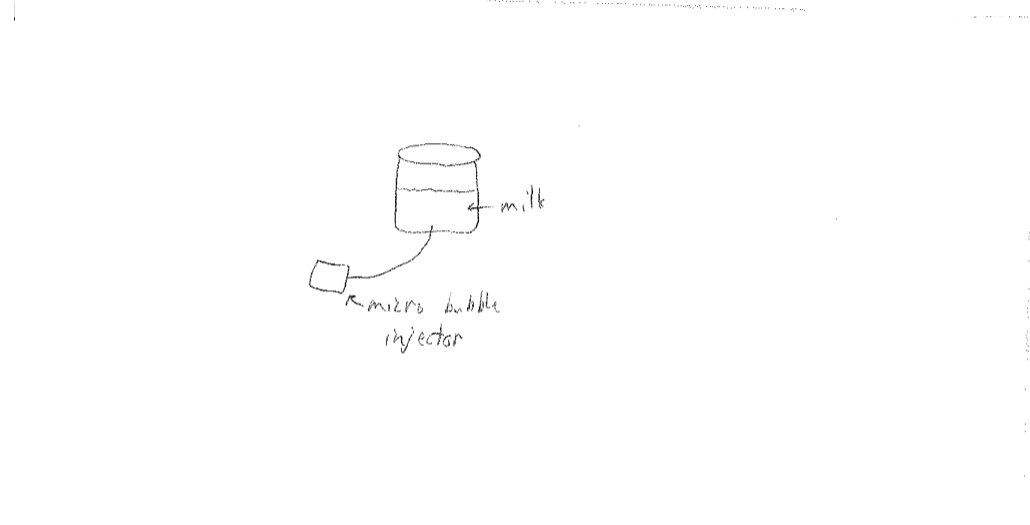 milk
micro bubble
injector